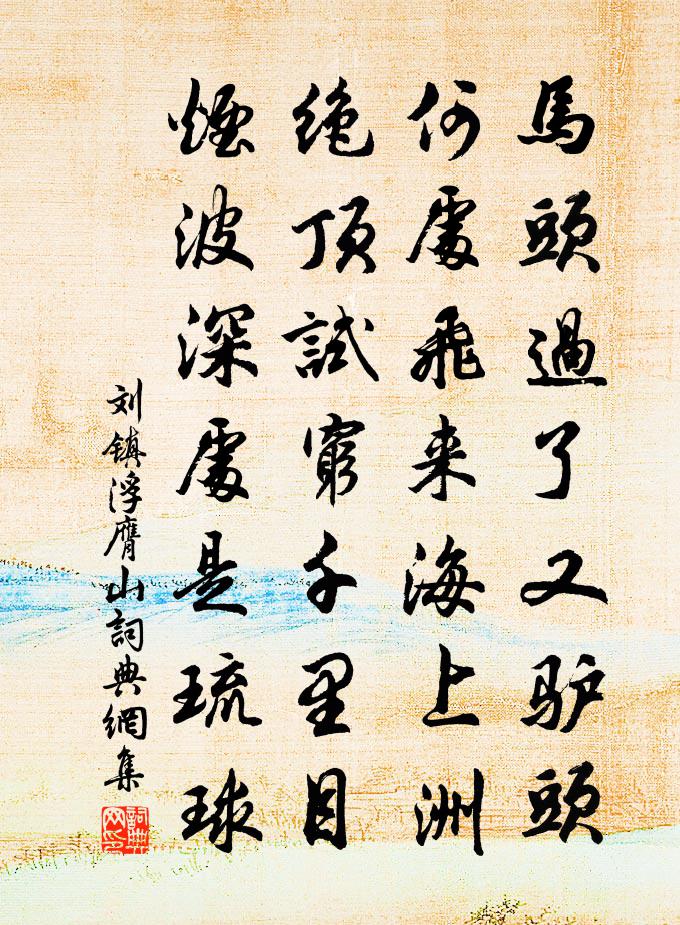 馬頭過了又驴頭
何處飛来海上洲
絶頂試窮千里目
煙波深處是琉球
刘镇浮膺山詞典網集
詞典网印